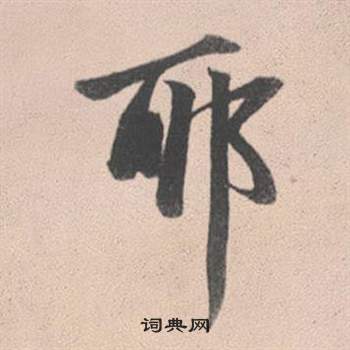 耶
词典网